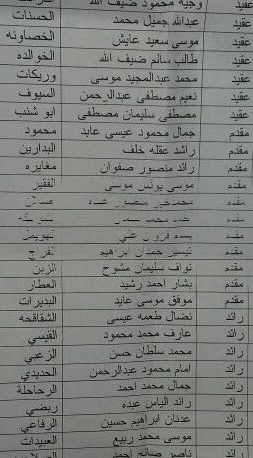 عقيد وجيه محمود ضيف الله
عقيد عبدالله جميل محمد الحسنات
عقيد موسى سعيد عايش الخصاونه
عقيد طالب سالم ضيف الله الخوالده
عقيد محمد عبدالمجيد موسى وريكات
عقيد نعيم مصطفى عبدالرحمن السيوف
عقيد مصطفى سليمان مصطفى ابو شنب
مقدم جمال محمود عيسى عايد محمود
مقدم راشد عقله خلف البدارين
مقدم رائد منصور صفوان مغايره
مقدم موسى يونس موسى الفقير
مقدم
مقدم
مقدم
مقدم تيسير حمدان ابراهيم
مقدم نواف سليمان مشوح الزبن
مقدم بشار احمد رشيد العطار
مقدم موفق موسى عايد البديرات
رائد نضال طعمه عيسى الشقاقحه
رائد عارف محمد محمود القيسي
رائد محمد سلطان حسن الزعبي
رائد امام محمود عبدالرحمن الحنيدي
رائد جمال محمد احمد الرحاحلة
رائد رائد الياس عبده ربضي
رائد عدنان ابراهيم حسين الرفاعي
رائد موسى محمد ربيع العبيدات
رائد ناصر صالح احمد